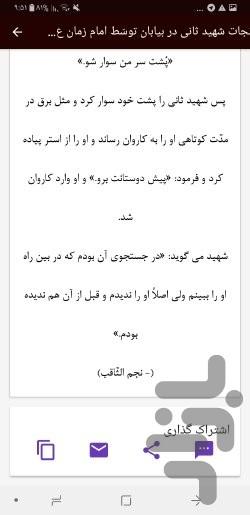 ۹:۵۱ ۸۱%
جات شهید ثانی در بیابان توسّط امام زمان ع...
«پُشت سر من سوار شو.»
پس شهید ثانی را پشت خود سوار کرد و مثل برق در
مدّت کوتاهی او را به کاروان رساند و او را از استر پیاده
کرد و فرمود: «پیش دوستانت برو.» و او وارد کاروان
شد.
شهید می گوید: «در جستجوی آن بودم که در بین راه
او را ببینم ولی اصلاً او را ندیدم و قبل از آن هم ندیده
بودم.»
(- نجم الثّاقب)
اشتراک گذاری